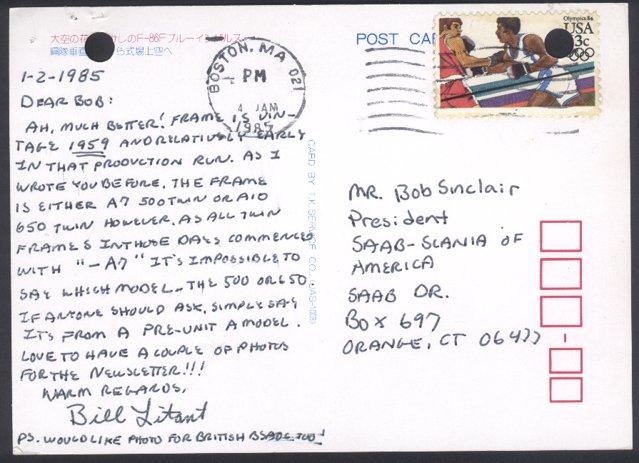 大空の花 しのF-86Fブルーイン ルス
ら式場上空へ
POST CAR
Olympics 84
USA
3c
BOSTON, MA 021
PM
4 JAN
1985
1-2-1985
DEAR BOB:
AH, MUCH BETTER! FRAME IS VIN-
TAGE 1959 AND RELATIVELY EARLY
IN THAT PRODUCTION RUN. AS I
WROTE YOU BEFORE, THE FRAME
IS EITHER A7 500 TWIN OR A10
650 TWIN HOWEVER, AS ALL TWIN
FRAMES IN THOSE DAYS COMMENCED
WITH "-A7" IT'S IMPOSSIBLE TO
SAY WHICH MODEL - THE 500 OR 650
IF ANYONE SHOULD ASK, SIMPLY SAY
IT'S FROM A PRE-UNIT A MODEL.
LOVE TO HAVE A COUPLE OF PHOTOS
FOR THE NEWSLETTER!!!
WARM REGARDS,
Bill Litant
PS. WOULD LIKE PHOTO FOR BRITISH BSAOC, TOO!
CARD BY T.K. SERVICE CO.
MR. Bob Sinclair
President
SAAB-SCANIA OF
AMERICA
SAAB DR.
BOX 697
ORANGE, CT 06477